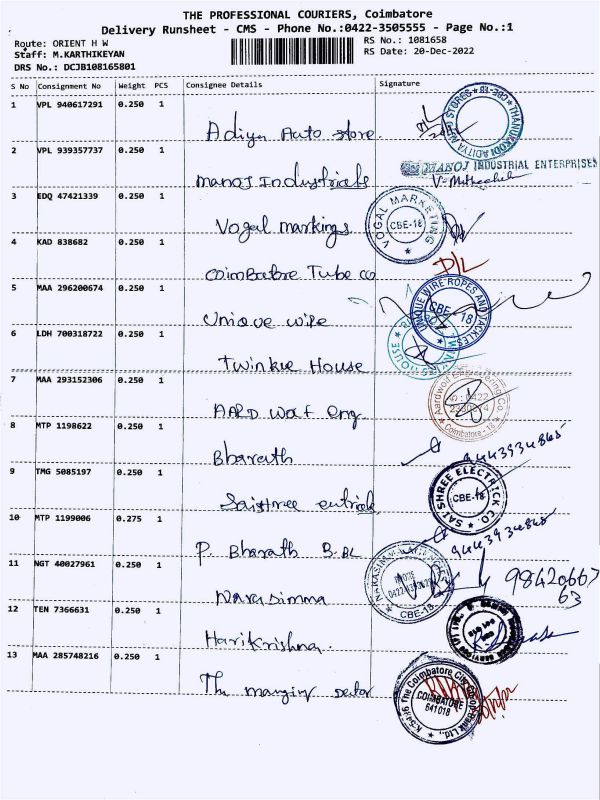 THE PROFESSIONAL COURIERS, Coimbatore
Delivery Runsheet - CMS - Phone No.:0422-3505555 - Page No.:1
Route: ORIENT H W RS No.: 1081658
Staff: M.KARTHIKEYAN RS Date: 20-Dec-2022
DRS No.: DCJB108165801
S No Consignment No Weight PCS Consignee Details Signature
1 VPL 940617291 0.250 1
Adiya Auto store.
THANUKODI ADITYA AUTO STORES CBE-18
2 VPL 939357737 0.250 1
MANOJ INDUSTRIAL ENTERPRISES
manoj Industrials
3 EDQ 47421339 0.250 1
Vogal markings
VOGAL MARKETING CBE-18
4 KAD 838682 0.250 1
Coimbatore Tube co
D/L
5 MAA 296200674 0.250 1
Unique wire
UNIQUE WIRE ROPES AND TACKLES CBE-18
6 LDH 700318722 0.250 1
Twinkle House
HOUSE
7 MAA 293152306 0.250 1
AARD wolf eng.
Aardwolf Engineering Co
Coimbatore - 18
8 MTP 1198622 0.250 1
Bharath
9443934865
9 TMG 5085197 0.250 1
Saishree entrick
SAI SHREE ELECTRICK CO CBE-18
10 MTP 1199006 0.275 1
P. Bharath B.BL
9443934865
11 NGT 40027961 0.250 1
Narasimma
CBE-18
98420667
63
12 TEN 7366631 0.250 1
Harikrishna.
13 MAA 285748216 0.250 1
The
The Coimbatore City Co-op. Bank Ltd.,
COIMBATORE
641018